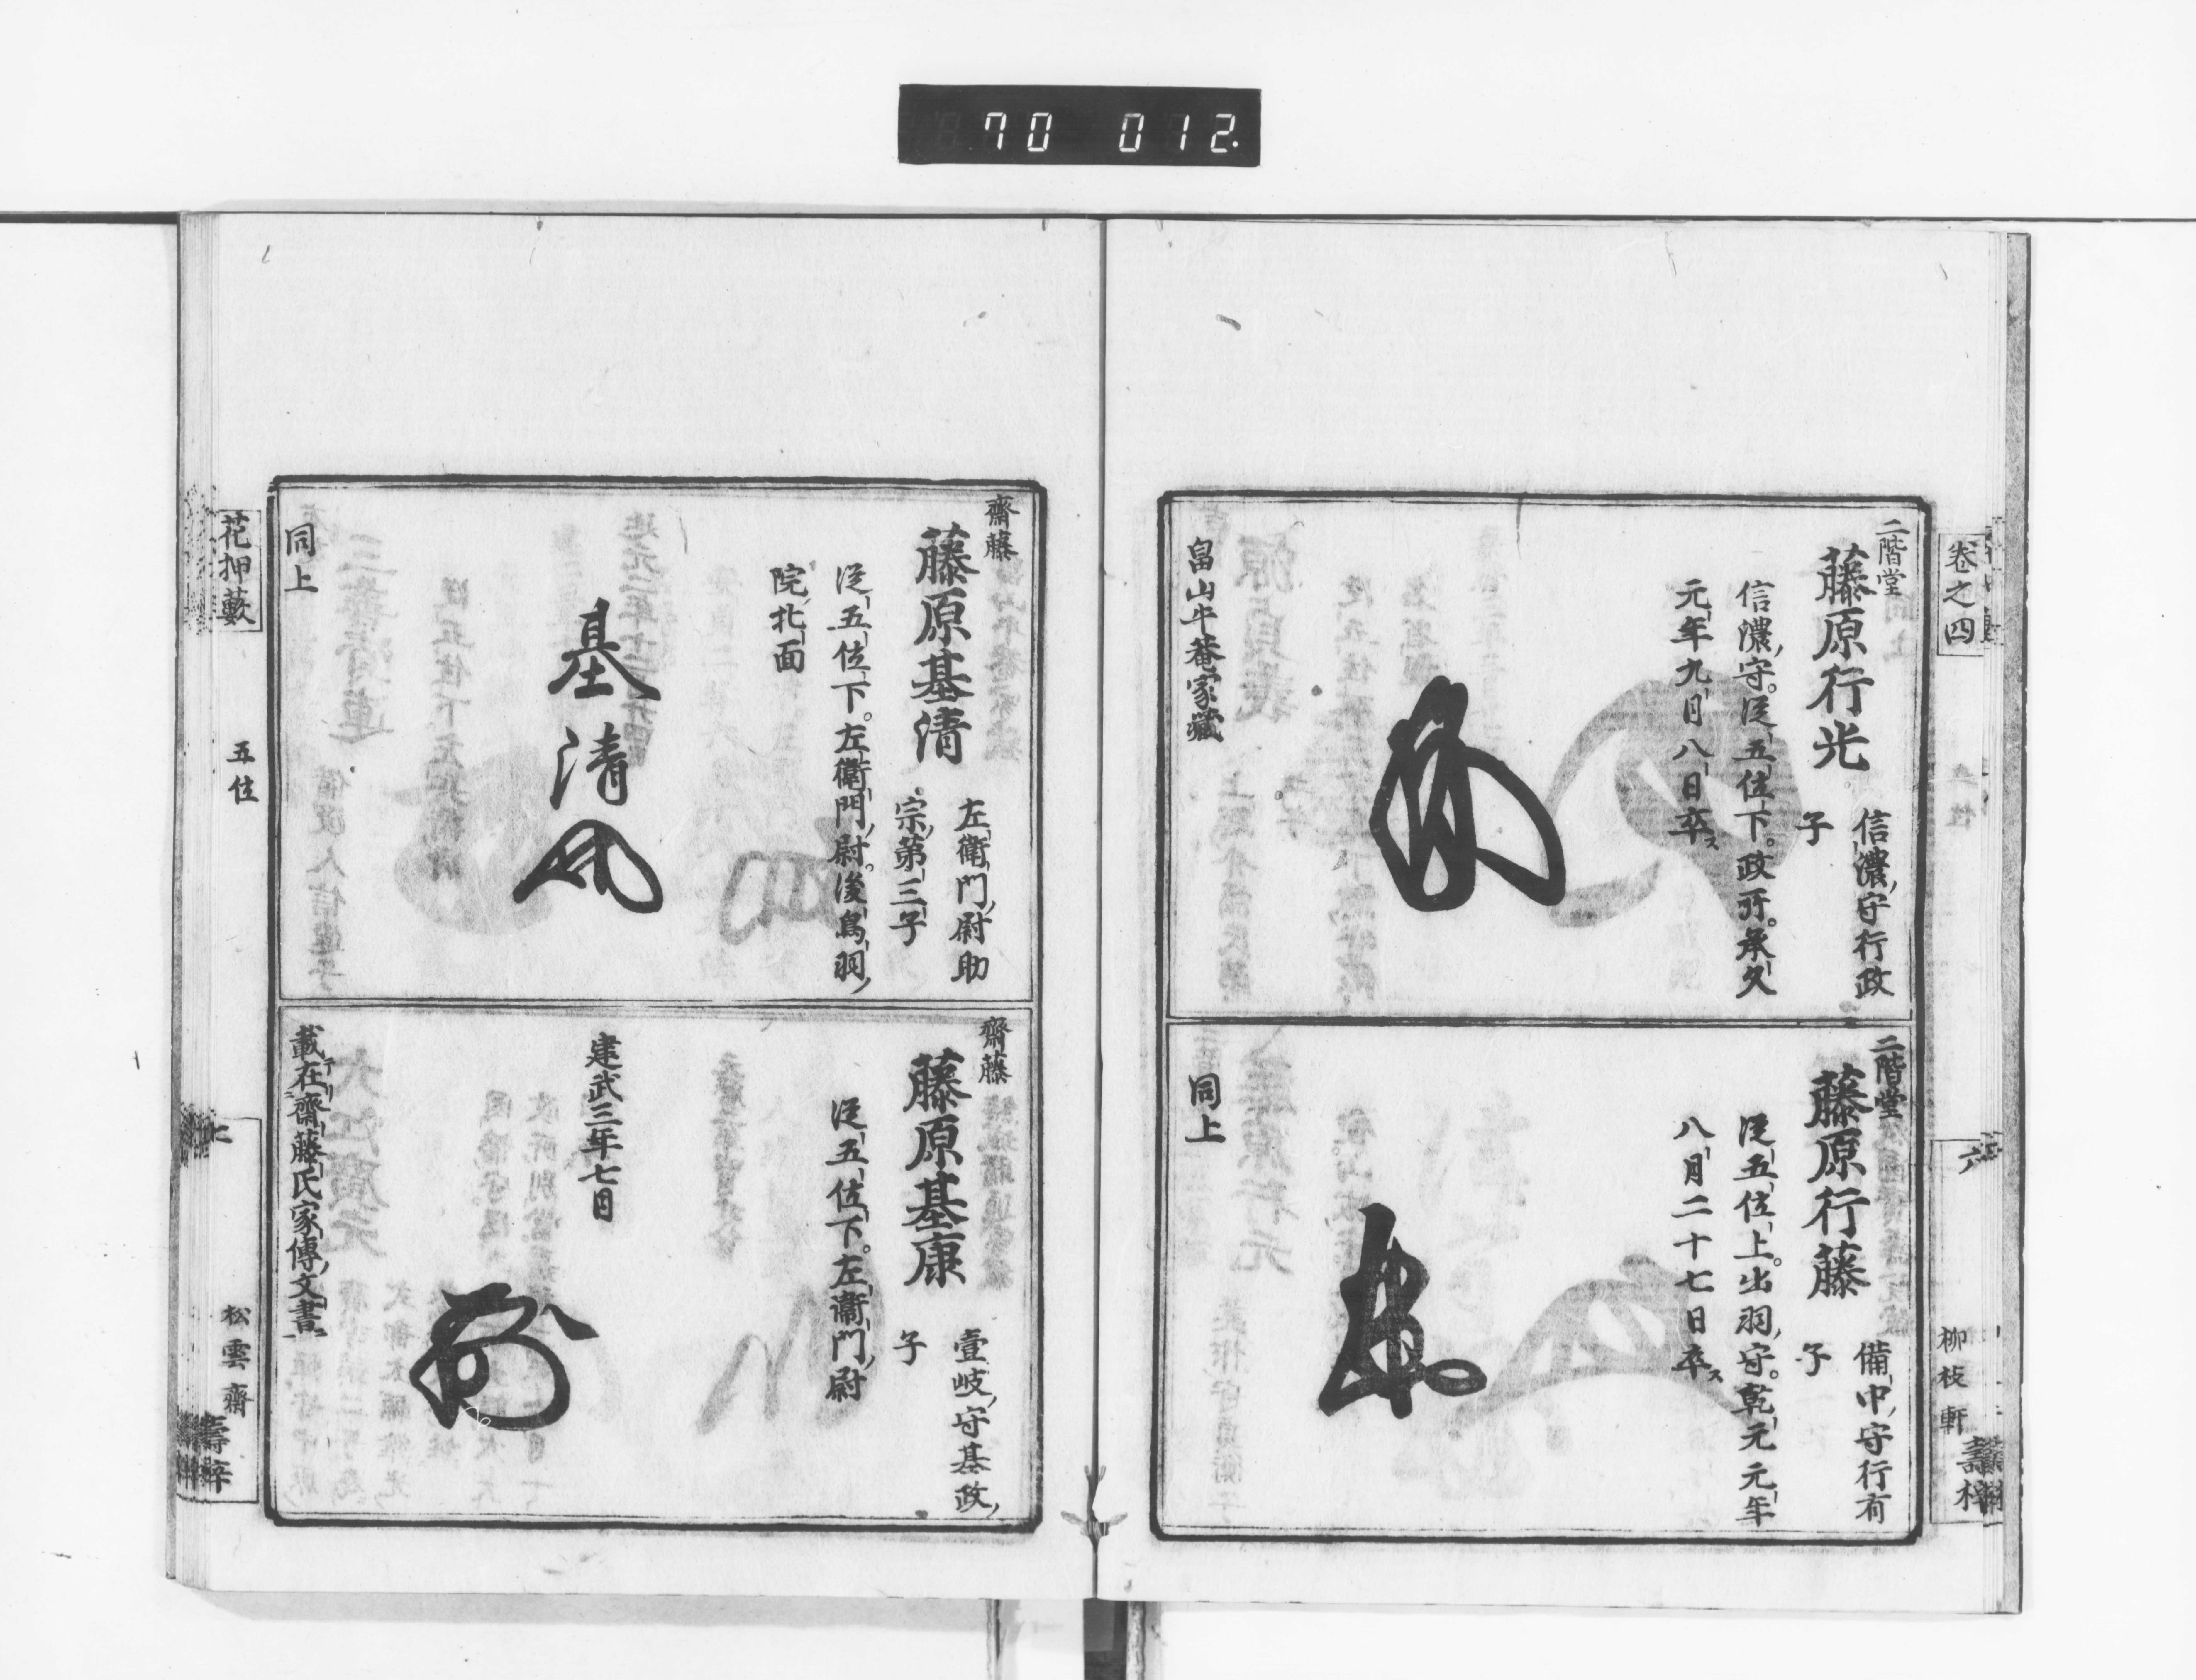 70 012.
卷之四
六
柳枝軒
二階堂
藤原行光
信濃守行政
子
信濃守。從五位下。政所。承久
元年九月八日卒ス
畠山牛菴家藏
二階堂
藤原行藤
備中守行有
子
從五位上。出羽守。乾元元年
八月二十七日卒ス
同上
齋藤
藤原基清
左衞門尉助
宗第三子
從五位下。左衞門尉。後鳥羽
院北面
基清
同上
齋藤
藤原基康
壹岐守基政
子
從五位下。左衞門尉
建武三年七月
載在齋藤氏家傳文書
花押藪
五位
七
松雲齋